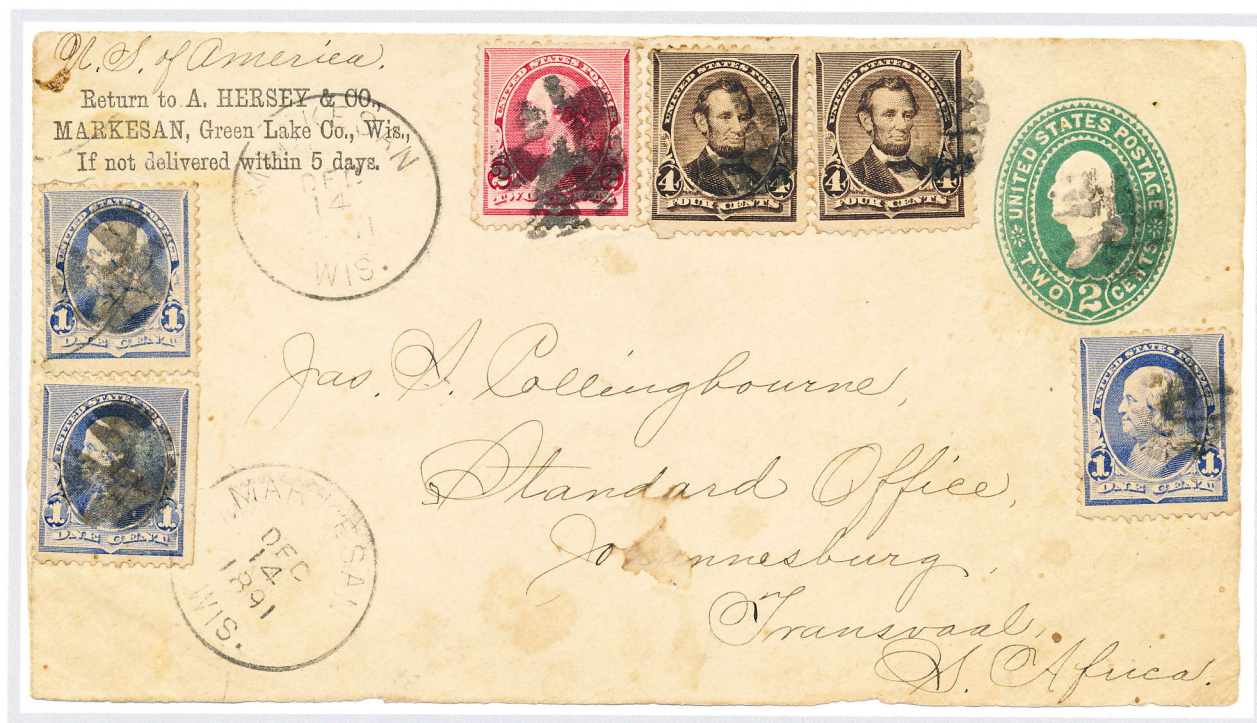 U. S. of America.
Return to A. HERSEY & CO.,
MARKESAN, Green Lake Co., Wis.,
If not delivered within 5 days.
MARKESAN
DEC
14
WIS.
UNITED STATES POSTAGE
2 2
TWO CENTS
UNITED STATES POSTAGE
4 4
FOUR CENTS
UNITED STATES POSTAGE
4 4
FOUR CENTS
UNITED STATES POSTAGE
TWO 2 CENTS
UNITED STATES POSTAGE
1 1
ONE CENT
UNITED STATES POSTAGE
1 1
ONE CENT
UNITED STATES POSTAGE
1 1
ONE CENT
Jas. A. Collingbourne,
Standard Office,
Johannesburg,
Transvaal,
S. Africa.
MARKESAN
DEC
14
1891
WIS.